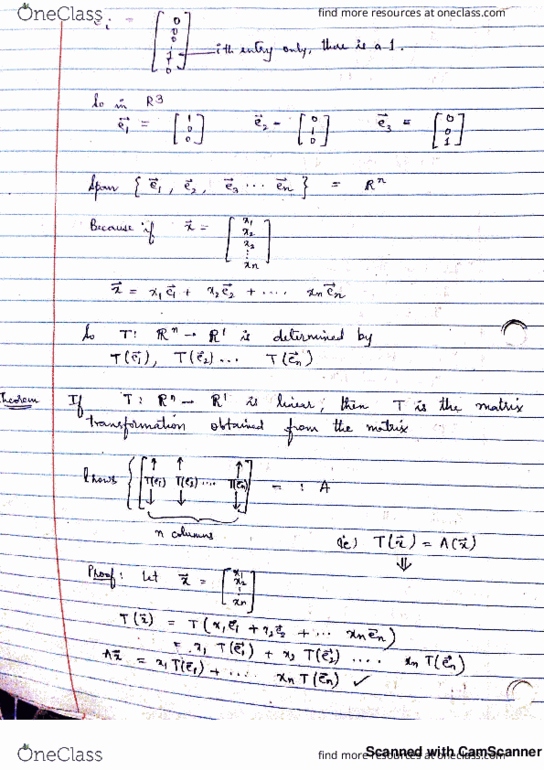 OneClass
find more resources at oneclass.com
e⃗i = [0 0 0 ⋮ 1 0] ith entry only, there is a 1.
So in R³
e⃗1 = [1 0 0] e⃗2 = [0 1 0] e⃗3 = [0 0 1]
Span { e⃗1, e⃗2, e⃗3 ... e⃗n } = Rⁿ
Because if x⃗ = [x1 x2 x2 ⋮ xn]
x⃗ = x1e⃗1 + x2e⃗2 + .... xne⃗n
So T: Rⁿ → Rˡ is determined by
T(e⃗1), T(e⃗2) ... T(e⃗n)
Theorem If T: Rⁿ → Rˡ is linear, then T is the matrix
transformation obtained from the matrix
l rows { [ T(e⃗1) T(e⃗2) .... T(e⃗n) ] = : A
n columns
(ie) T(x⃗) = A(x⃗)
⇓
Proof: Let x⃗ = [x1 x2 ⋮ xn]
T(x⃗) = T(x1e⃗1 + x2e⃗2 + ... xne⃗n)
= x1 T(e⃗1) + x2 T(e⃗2) .... xn T(e⃗n)
Ax⃗ = x1T(e⃗1) + .... xn T(e⃗n) ✓
OneClass
find more resources at oneclass.com
Scanned with CamScanner